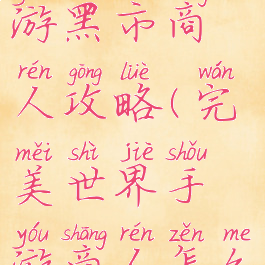 游黑市商
rén gōng lüè wán
人攻略(完
měi shì jiè shǒu
美世界手
yóu shāng rén zěn me
游商人怎么